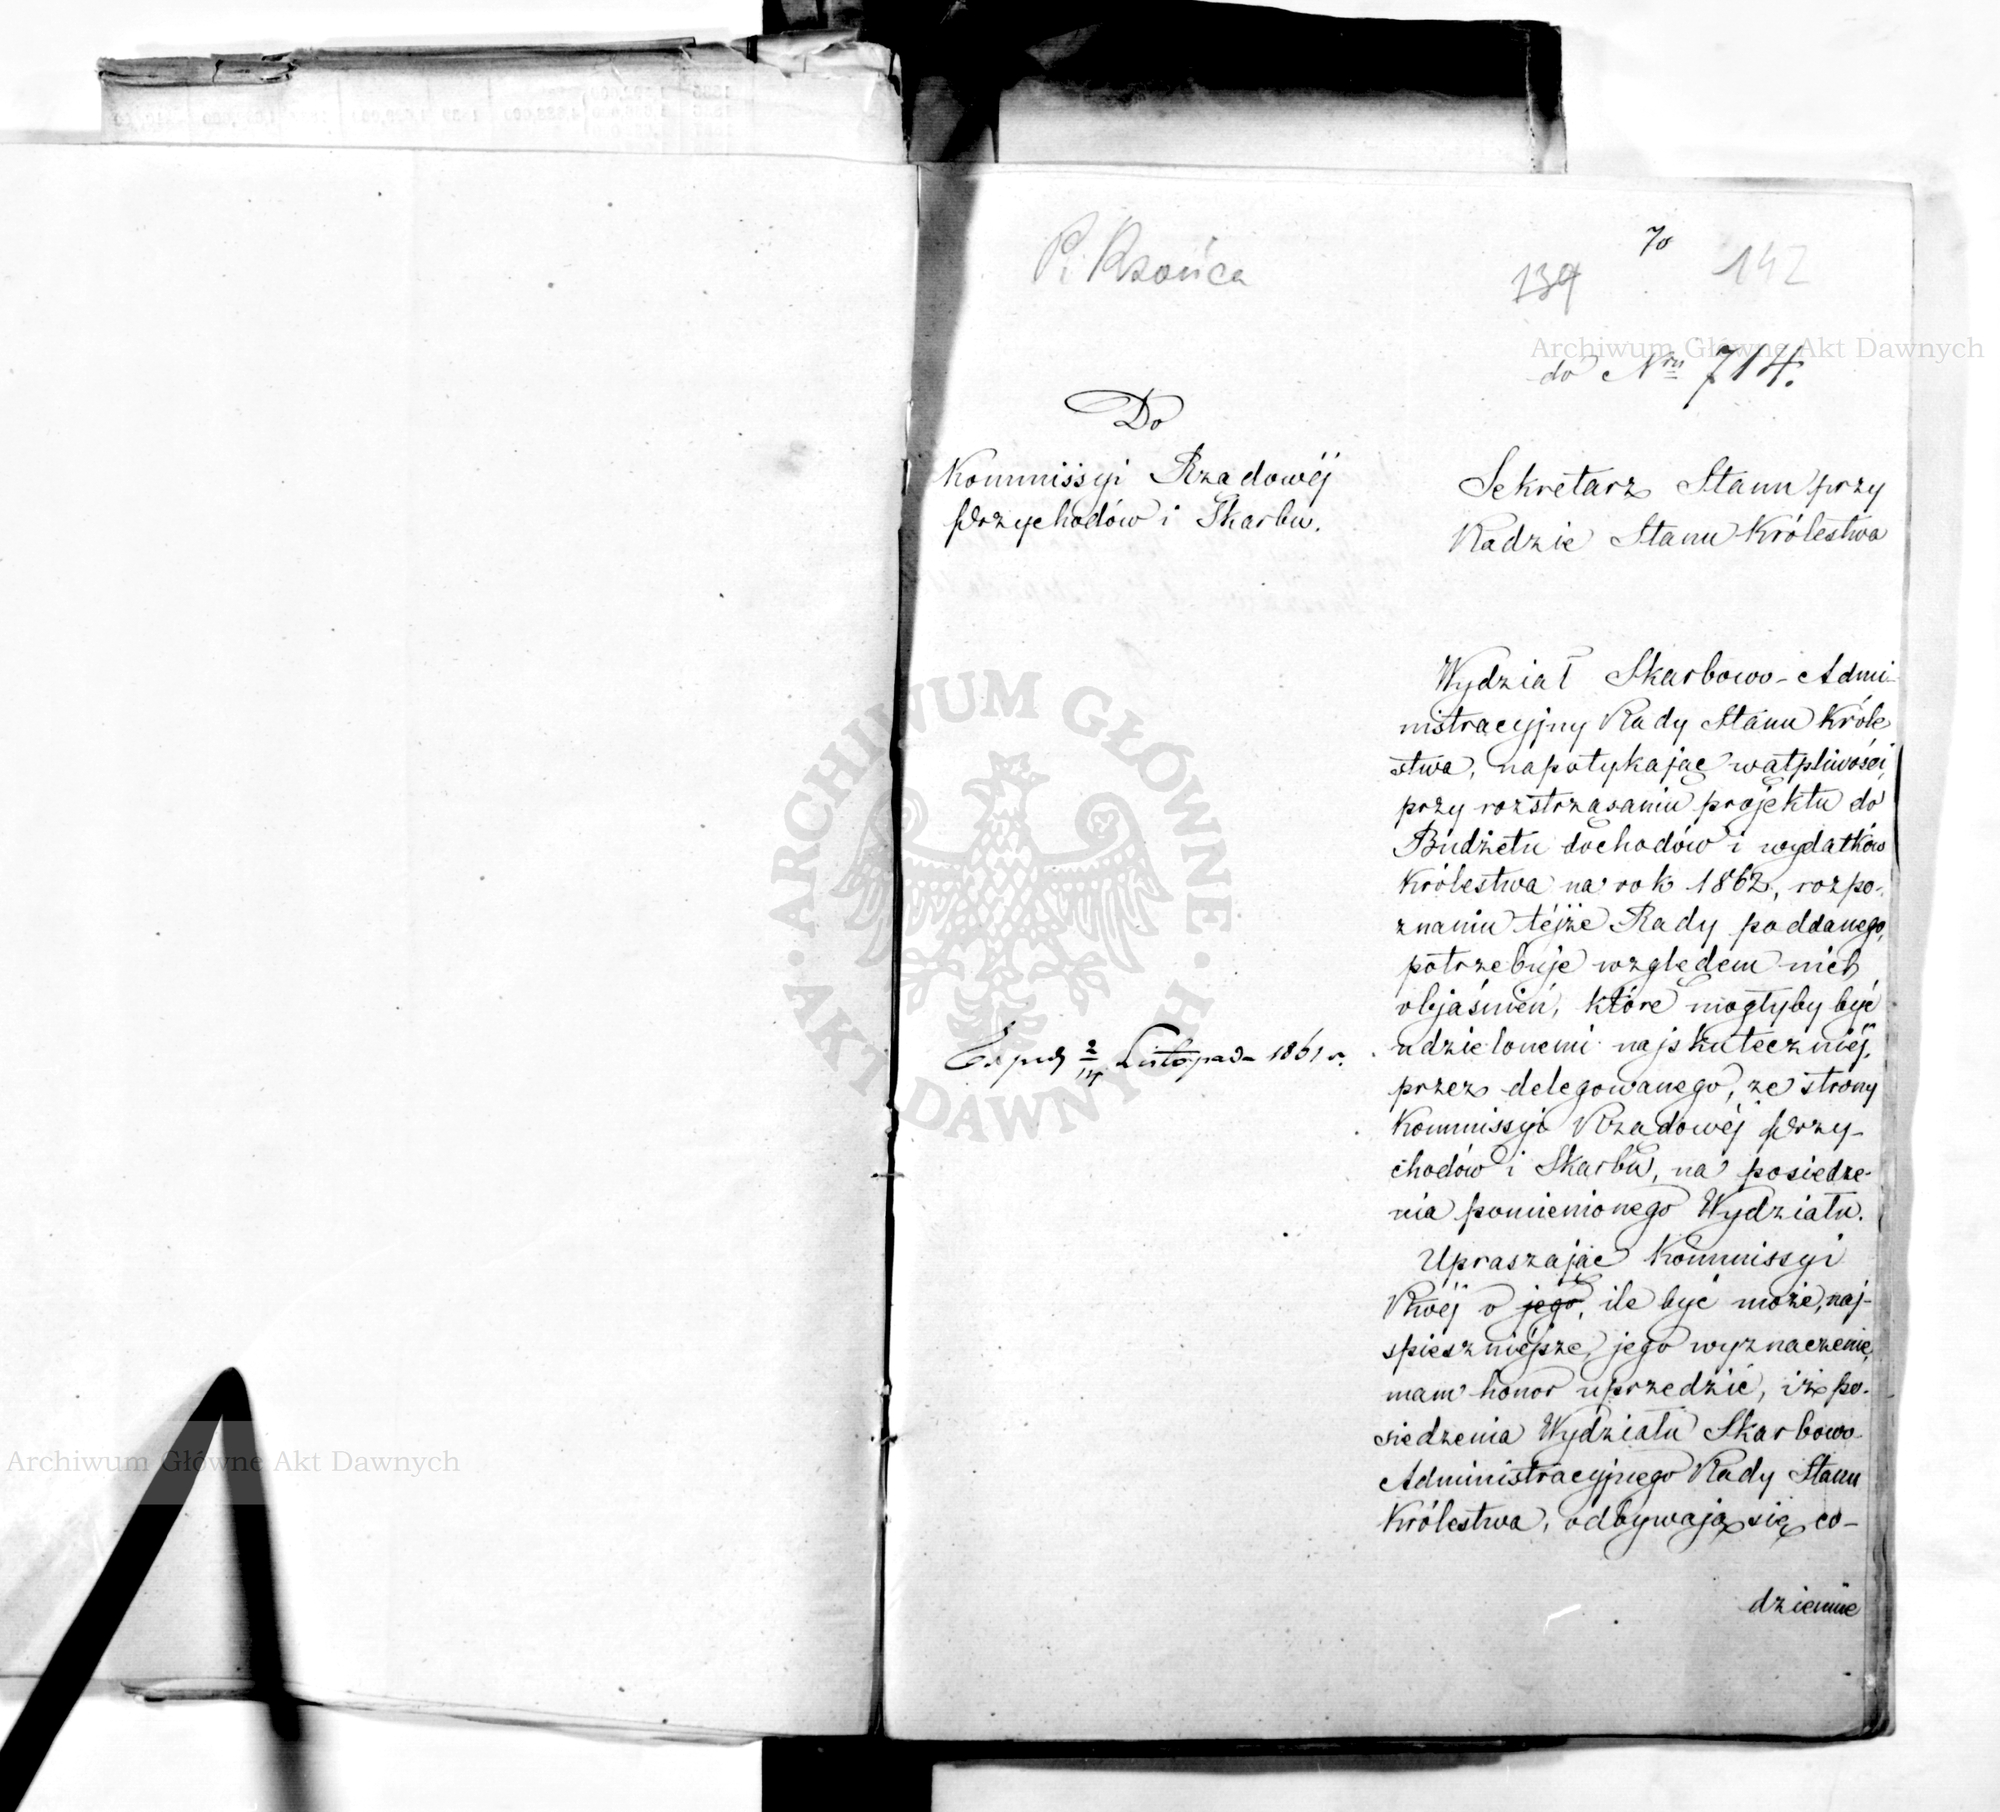 P. Rzońca
70
139
142
do Nru 714.
Do
Kommissyi Rządowéj
Przychodów i Skarbu.
Sekretarz Stanu przy
Radzie Stanu Królestwa
Wydział Skarbowo-Admi-
nistracyjny Rady Stanu Króle
stwa, napotykając wątpliwości
przy roztrząsaniu projektu do
Budżetu dochodów i wydatków
Królestwa na rok 1862, rozpo-
znaniu téjże Rady poddanego,
potrzebuje względem nich
objaśnień, które mogłyby być
udzielonemi najskuteczniéj,
przez delegowanego, ze strony
Kommissyi Rządowéj Przy-
chodów i Skarbu, na posiedze-
nia pomienionego Wydziału.
Exped 2/14 Listopada 1861 r.
Upraszając Kommissyi
Rwéj o jego, ile być może, naj-
spieszniejsze, jego wyznaczenie,
mam honor uprzedzić, iż po-
siedzenia Wydziału Skarbowo
Administracyjnego Rady Stanu
Królestwa, odbywają się co-
dziennie
Archiwum Główne Akt Dawnych
Archiwum Główne Akt Dawnych
ARCHIWUM GŁÓWNE AKT DAWNYCH